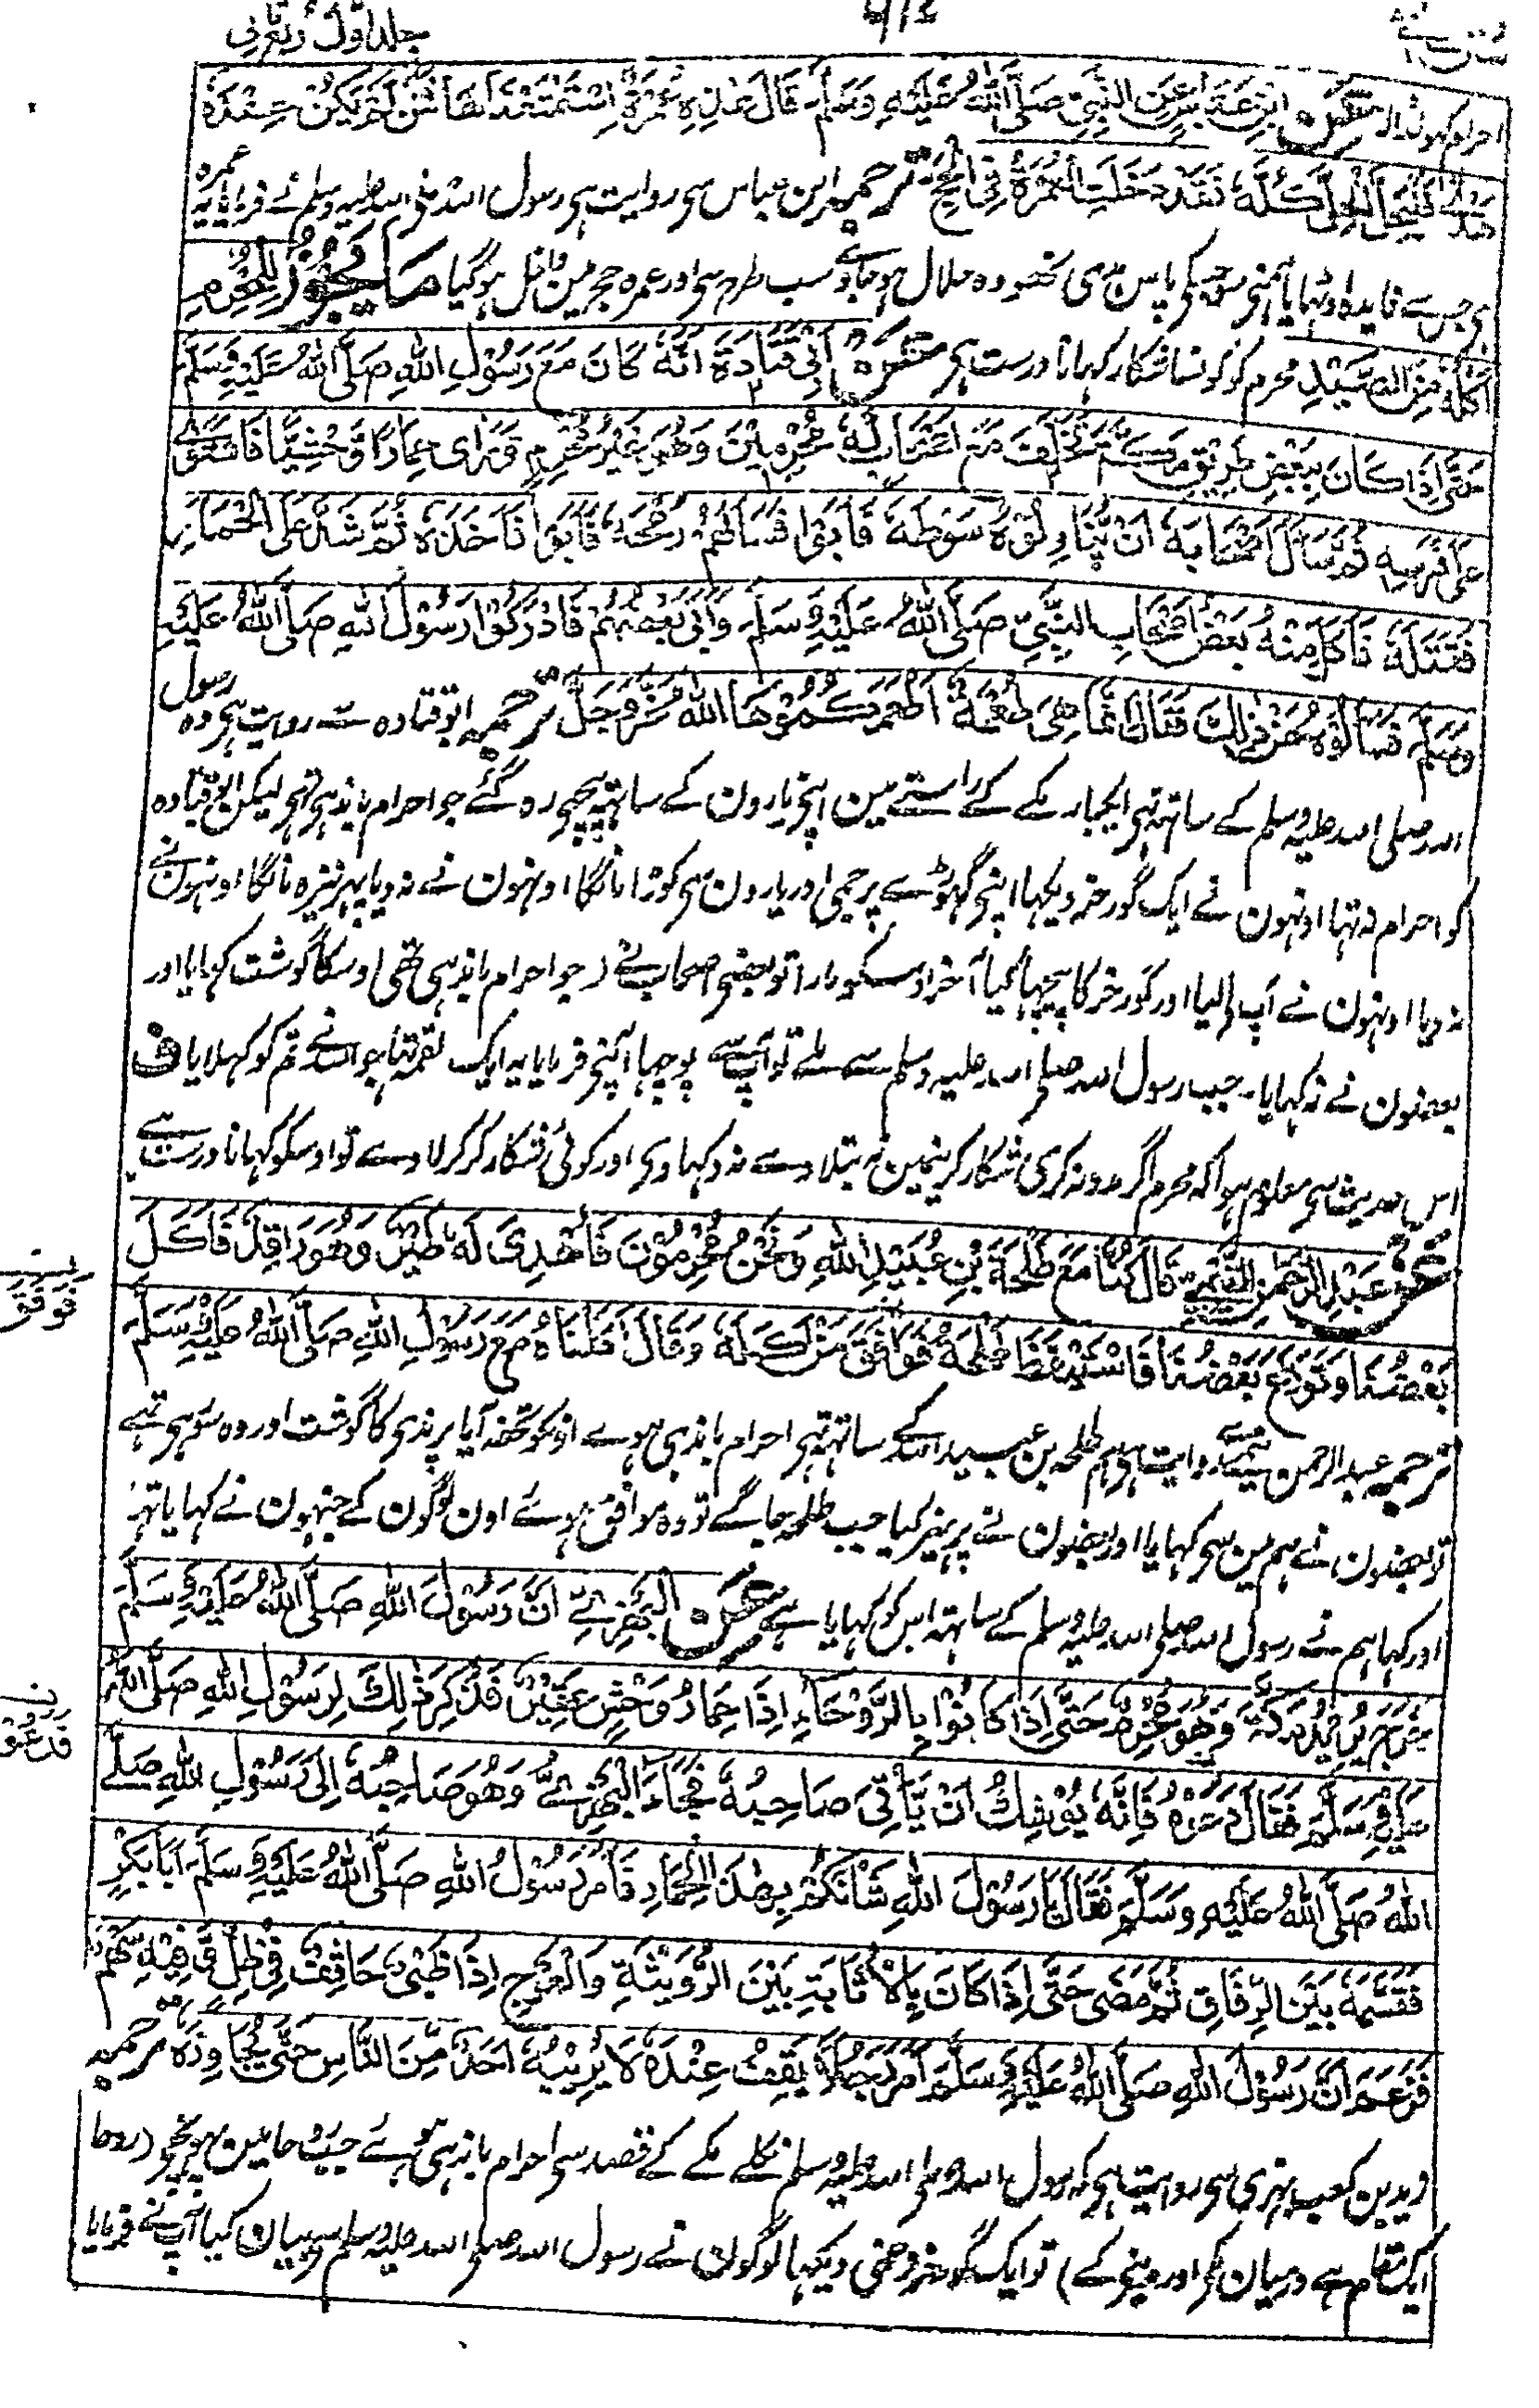 جلد اول ربع ثانی
احرام کھولدالے عَنِ ابْنِ عَبَّاسٍ عَنِ النَّبِيِّ صَلَّى اللهُ عَلَيْهِ وَسَلَّمَ قَالَ هٰذِهِ عُمْرَةٌ اِسْتَمْتَعْنَاهَا فَمَنْ لَمْ يَكُنْ عِنْدَهُ
هَدْيٌ فَلْيَحِلَّ الْحِلَّ كُلَّهُ فَقَدْ دَخَلَتِ الْعُمْرَةُ فِي الْحَجِّ ترجمہ ابن عباس سی روایت ہی رسول اللہ صلی اللہ علیہ وسلم نے فرمایا یہ عمرہ
ہی جس سے فایدہ اوٹھایا ہمنی سو جسکی پاس ہدی نہو وہ حلال ہو جاوے سب طرح سی اور عمرہ حج مین داخل ہوگیا مَا يَجُوْزُ لِلْمُحْرِمِ
اَكْلُهُ مِنَ الصَّيْدِ محرم کو کونسا شکار کہانا درست ہی عَنْ اَبِيْ قَتَادَةَ اَنَّهُ كَانَ مَعَ رَسُوْلِ اللهِ صَلَّى اللهُ عَلَيْهِ وَسَلَّمَ
حَتّٰى اِذَا كَانَ بِبَعْضِ طَرِيْقِ مَكَّةَ تَخَلَّفَ مَعَ اَصْحَابٍ لَهُ مُحْرِمِيْنَ وَهُوَ غَيْرُ مُحْرِمٍ وَرَاٰى حِمَارًا وَّحْشِيًّا فَاسْتَوٰى
عَلٰى فَرَسِهِ ثُمَّ سَاَلَ اَصْحَابَهُ اَنْ يُّنَاوِلُوْهُ سَوْطَهُ فَاَبَوْا فَسَاَلَهُمْ رُمْحَهُ فَاَبَوْا فَاَخَذَهُ ثُمَّ شَدَّ عَلَى الْحِمَارِ
فَقَتَلَهُ فَاَكَلَ مِنْهُ بَعْضُ اَصْحَابِ النَّبِيِّ صَلَّى اللهُ عَلَيْهِ وَسَلَّمَ وَاَبٰى بَعْضُهُمْ فَاَدْرَكُوْا رَسُوْلَ اللهِ صَلَّى اللهُ عَلَيْهِ
وَسَلَّمَ فَسَاَلُوْهُ عَنْ ذٰلِكَ فَقَالَ اِنَّمَا هِيَ طُعْمَةٌ اَطْعَمَكُمُوْهَا اللهُ عَزَّ وَجَلَّ ترجمہ ابو قتادہ سے روایت ہی وہ رسول
اللہ صلی اللہ علیہ وسلم کے ساتھ تہی ایکبار مکے کے راستے مین اپنی یارون کے ساتھ پیچہی رہ گئے جو احرام باندہی تہی لیکن ابو قتادہ
کو احرام نہ تہا اونہون نے ایک گورخر دیکہا اپنی گہوڑے پر جمی اور یارون سی کوڑا مانگا اونہون نے نہ دیا پہر نیزہ مانگا اونہون نے
نہ دیا اونہون نے آپ لے لیا اور گورخر کا پیچہا کیا آخر اوسکو مارا تو بعضی اصحاب نے (جو احرام باندہی تہی اوسکا گوشت کہایا اور
بعضون نے نہ کہایا۔ جب رسول اللہ صلی اللہ علیہ وسلم سے ملے تو آپ سے پوچہا آپنی فرمایا یہ ایک لقمہ تہا جو اللہ نے تم کو کہلایا ف
اس حدیث سی معلوم ہوا کہ محرم اگر مدد نہ کری شکار کرنیمین نہ بتلا دے نہ دکہاوی اور کوئی شکار کر کر لا دے تو اوسکو کہانا درست ہے
عَنْ عَبْدِ الرَّحْمٰنِ التَّيْمِيِّ قَالَ كُنَّا مَعَ طَلْحَةَ بْنِ عُبَيْدِ اللهِ وَنَحْنُ مُحْرِمُوْنَ فَاُهْدِيَ لَهُ طَيْرٌ وَهُوَ رَاقِدٌ فَاَكَلَ
بَعْضُنَا وَتَوَرَّعَ بَعْضُنَا فَاسْتَيْقَظَ طَلْحَةُ فَوَافَقَ مَنْ اَكَلَهُ وَقَالَ اَكَلْنَاهُ مَعَ رَسُوْلِ اللهِ صَلَّى اللهُ عَلَيْهِ وَسَلَّمَ
ترجمہ عبد الرحمن تیمی سے روایت ہی ہم طلحہ بن عبید اللہ کے ساتھ تہی احرام باندہی ہوے اونکو تحفہ آیا پرندی کا گوشت اور وہ سو رہی تہے
تو بعضون نے ہم مین سی کہایا اور بعضون نے پرہیز کیا جب طلحہ جاگے تو وہ موافق ہوئے اون لوگون کے جنہون نے کہایا تہا
اور کہا ہم نے رسول اللہ صلی اللہ علیہ وسلم کے ساتھ اس کو کہایا ہے عَنِ الْبَهْزِيِّ اَنَّ رَسُوْلَ اللهِ صَلَّى اللهُ عَلَيْهِ وَسَلَّمَ
خَرَجَ يُرِيْدُ مَكَّةَ وَهُوَ مُحْرِمٌ حَتّٰى اِذَا كَانُوْا بِالرَّوْحَاءِ اِذَا حِمَارُ وَحْشٍ عَقِيْرٌ فَذُكِرَ ذٰلِكَ لِرَسُوْلِ اللهِ صَلَّى اللهُ
عَلَيْهِ وَسَلَّمَ فَقَالَ دَعُوْهُ فَاِنَّهُ يُوْشِكُ اَنْ يَّاْتِيَ صَاحِبُهُ فَجَاءَ الْبَهْزِيُّ وَهُوَ صَاحِبُهُ اِلٰى رَسُوْلِ اللهِ صَلَّى
اللهُ صَلَّى اللهُ عَلَيْهِ وَسَلَّمَ فَقَالَ يَا رَسُوْلَ اللهِ شَاْنَكُمْ بِهٰذَا الْحِمَارِ فَاَمَرَ رَسُوْلُ اللهِ صَلَّى اللهُ عَلَيْهِ وَسَلَّمَ اَبَا بَكْرٍ
فَقَسَّمَهُ بَيْنَ الرِّفَاقِ ثُمَّ مَضٰى حَتّٰى اِذَا كَانَ بِالْاُثَايَةِ بَيْنَ الرُّوَيْثَةِ وَالْعَرْجِ اِذَا ظَبْيٌ حَاقِفٌ فِيْ ظِلٍّ وَّفِيْهِ سَهْمٌ
فَزَعَمَ اَنَّ رَسُوْلَ اللهِ صَلَّى اللهُ عَلَيْهِ وَسَلَّمَ اَمَرَ رَجُلًا يَقِفُ عِنْدَهُ لَا يُرِيْبُهُ اَحَدٌ مِّنَ النَّاسِ حَتّٰى يُجَاوِزَهُ ترجمہ
زید بن کعب بہزی سی روایت ہی کہ رسول اللہ صلی اللہ علیہ وسلم نکلے مکے کے قصد سی احرام باندہی ہوئے جب روحا مین پہونچی (روحا
ایک مقام ہے درمیان مکی اور مدینی کے) تو ایک گورخر زخمی دیکہا لوگون نے رسول اللہ صلی اللہ علیہ وسلم سی بیان کیا آپ نے فرمایا